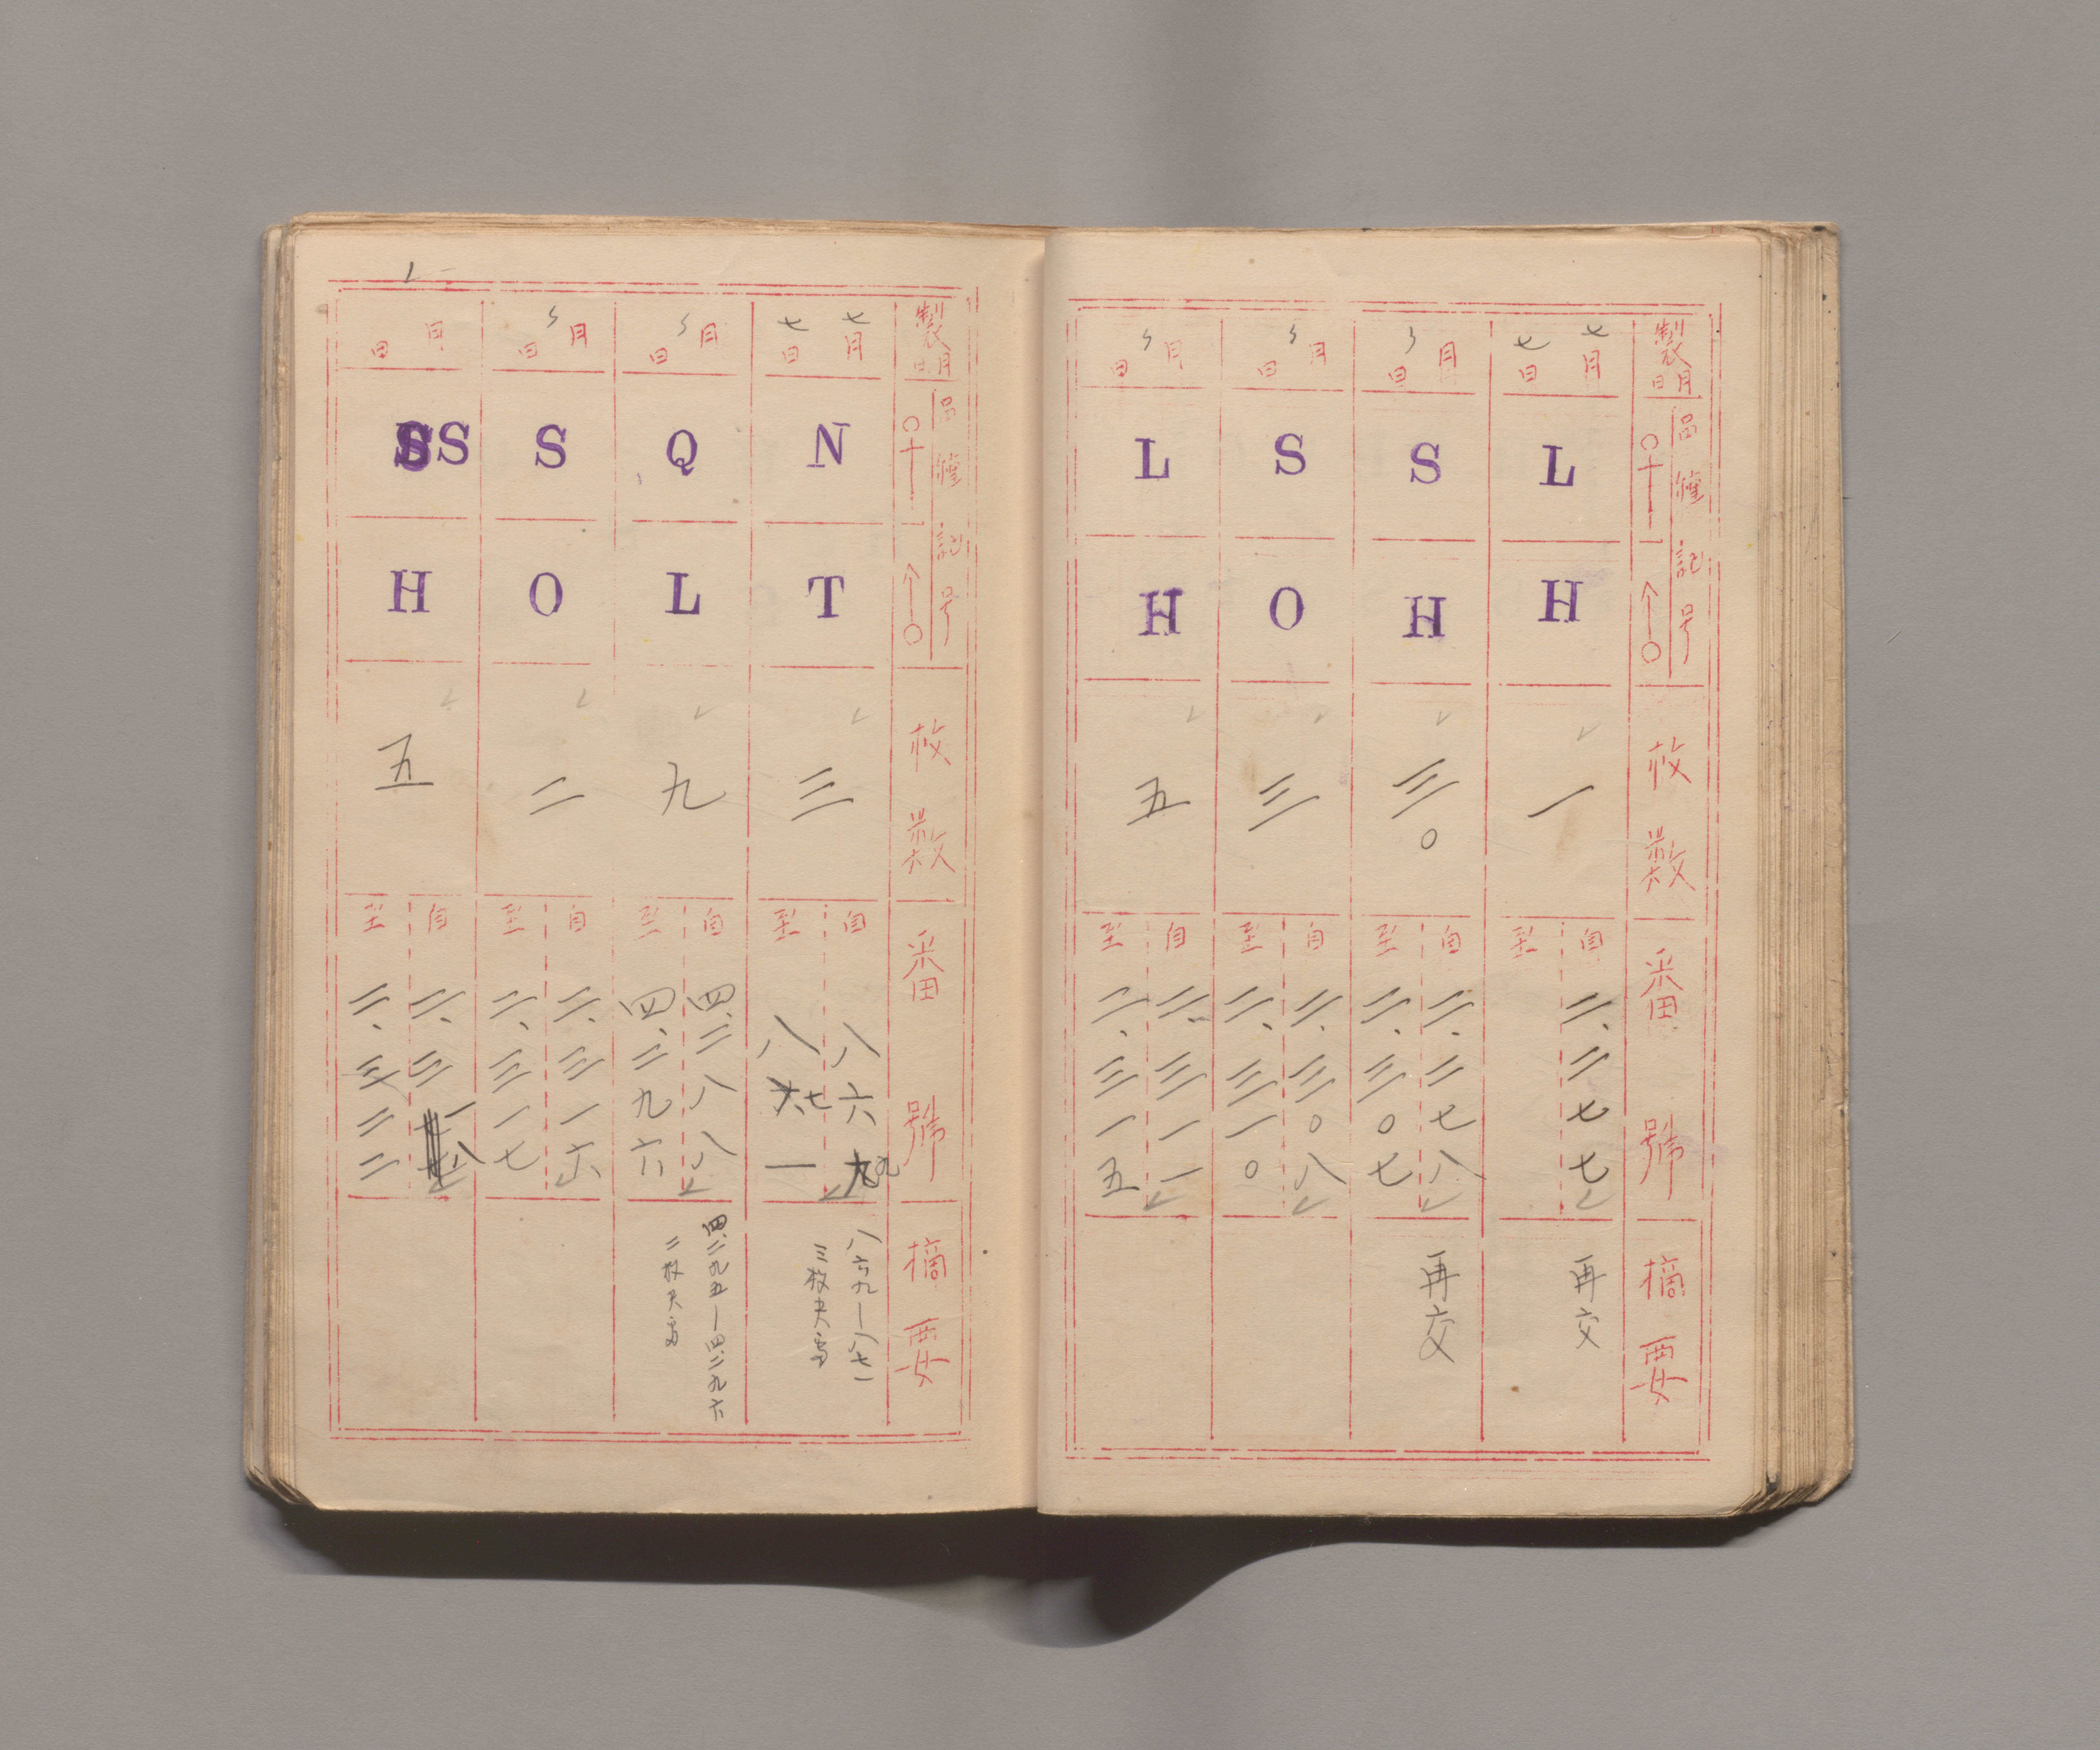 製月日
品種記号
枚数
番號
摘要
七月七日
L
H
一
自 二、二七七
至
再交
月日
S
H
三〇
自 二、二七八
至 二、三〇七
再交
月日
S
O
三
自 二、三〇八
至 二、三一〇
月日
L
H
五
自 二、三一一
至 二、三一五
製月日
品種記号
枚数
番號
摘要
七月七日
N
T
三
自 八六九
至 八七一
八六九—八七一
三枚
月日
Q
L
九
自 四、二八八
至 四、二九六
四、二九五—四、二九六
二枚
月日
S
O
二
自 二、三一六
至 二、三一七
月日
S
H
五
自 二、三一八
至 二、三二二